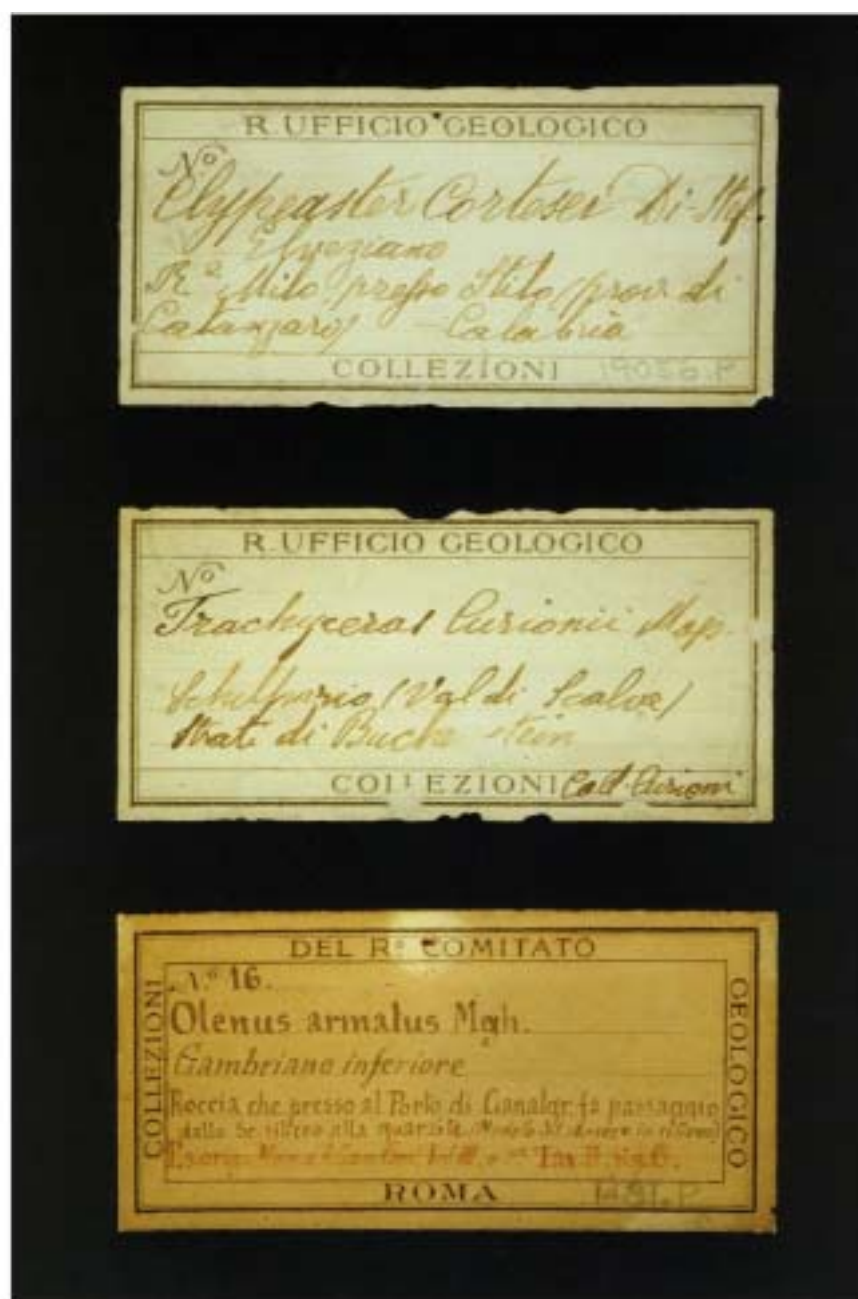 R. UFFICIO GEOLOGICO
Nº
Clypeaster Cortesei Di-Stef.
Elveziano
Rª Milo presso Stilo (prov. di
Catanzaro) - Calabria
COLLEZIONI 19056.P
R. UFFICIO GEOLOGICO
Nº
Trachyceras Curionii Mojs.
Schilpario (Val di Scalve)
Strati di Buchenstein
COLLEZIONI Coll. Curioni
DEL Rº COMITATO
COLLEZIONI
GEOLOGICO
Nº 16.
Olenus armatus Mgh.
Cambriano inferiore
Roccia che presso al Porto di Canalgr. fa passaggio
dallo alla quarzite
Tav. II. fig. 6.
ROMA